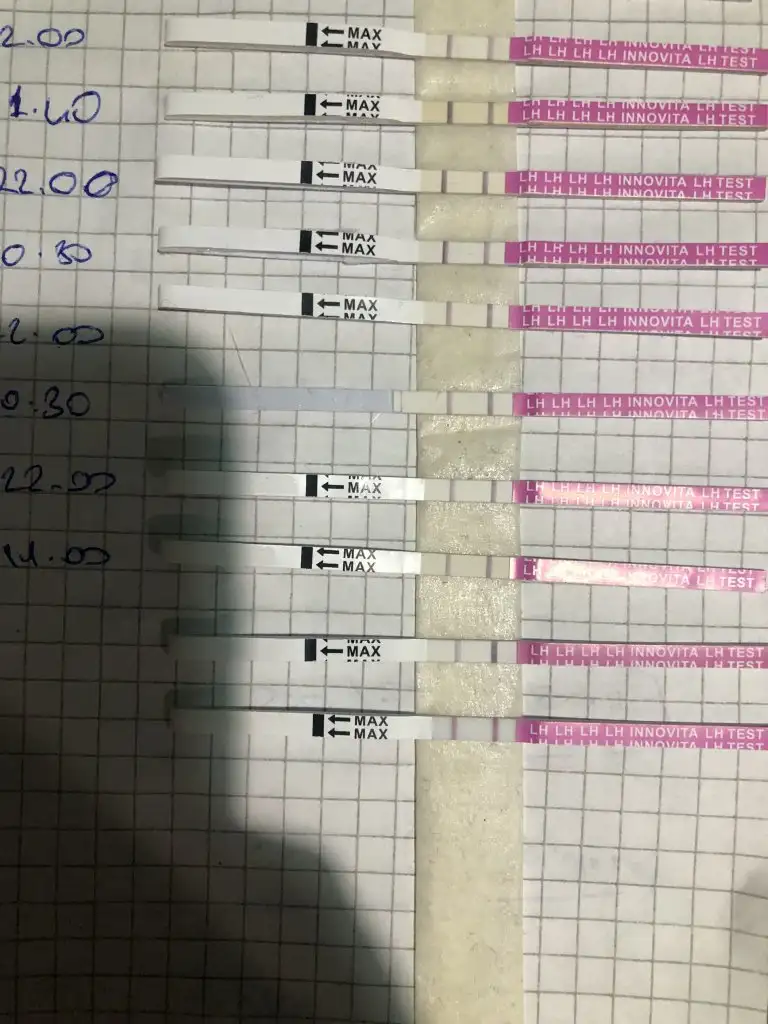 2.00
← MAX
← MAX
LH LH LH LH INNOVITA LH TEST
LH LH LH LH INNOVITA LH TEST
1.40
MAX
← MAX
← MAX
LH LH LH LH INNOVITA LH TEST
LH LH LH LH INNOVITA LH TEST
22.00
MAX
← MAX
LH LH LH LH INNOVITA LH TEST
LH LH LH LH INNOVITA LH TEST
0.30
MAX
← MAX
LH LH LH LH INNOVITA LH TEST
LH LH LH LH INNOVITA LH TEST
← MAX
MAX
LH LH LH LH INNOVITA LH TEST
LH LH LH LH INNOVITA LH TEST
2.00
0.30
LH LH LH LH INNOVITA LH TEST
LH LH LH LH INNOVITA LH TEST
22.00
MAX
← MAX
LH LH LH LH INNOVITA LH TEST
LH LH LH LH INNOVITA LH TEST
← MAX
← MAX
LH
LH INNOVITA LH TEST
MAX
← MAX
LH LH LH LH INNOVITA LH TEST
LH LH LH LH INNOVITA LH TEST
← MAX
← MAX
LH LH LH LH INNOVITA LH TEST
LH LH LH LH INNOVITA LH TEST